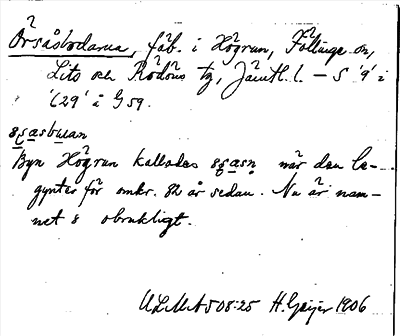 Örsåsbodarna, fäb. i Högrun, Föllinge sn,
Lits och Rödöns tg, Jämtl. l. – S '9' i
'629' å G 59.
Byn Högrun kallades när den be-
gyntes för omkr. 82 år sedan. Nu är nam-
net obrukligt.
ULMA 508:25 H. Geijer 1906